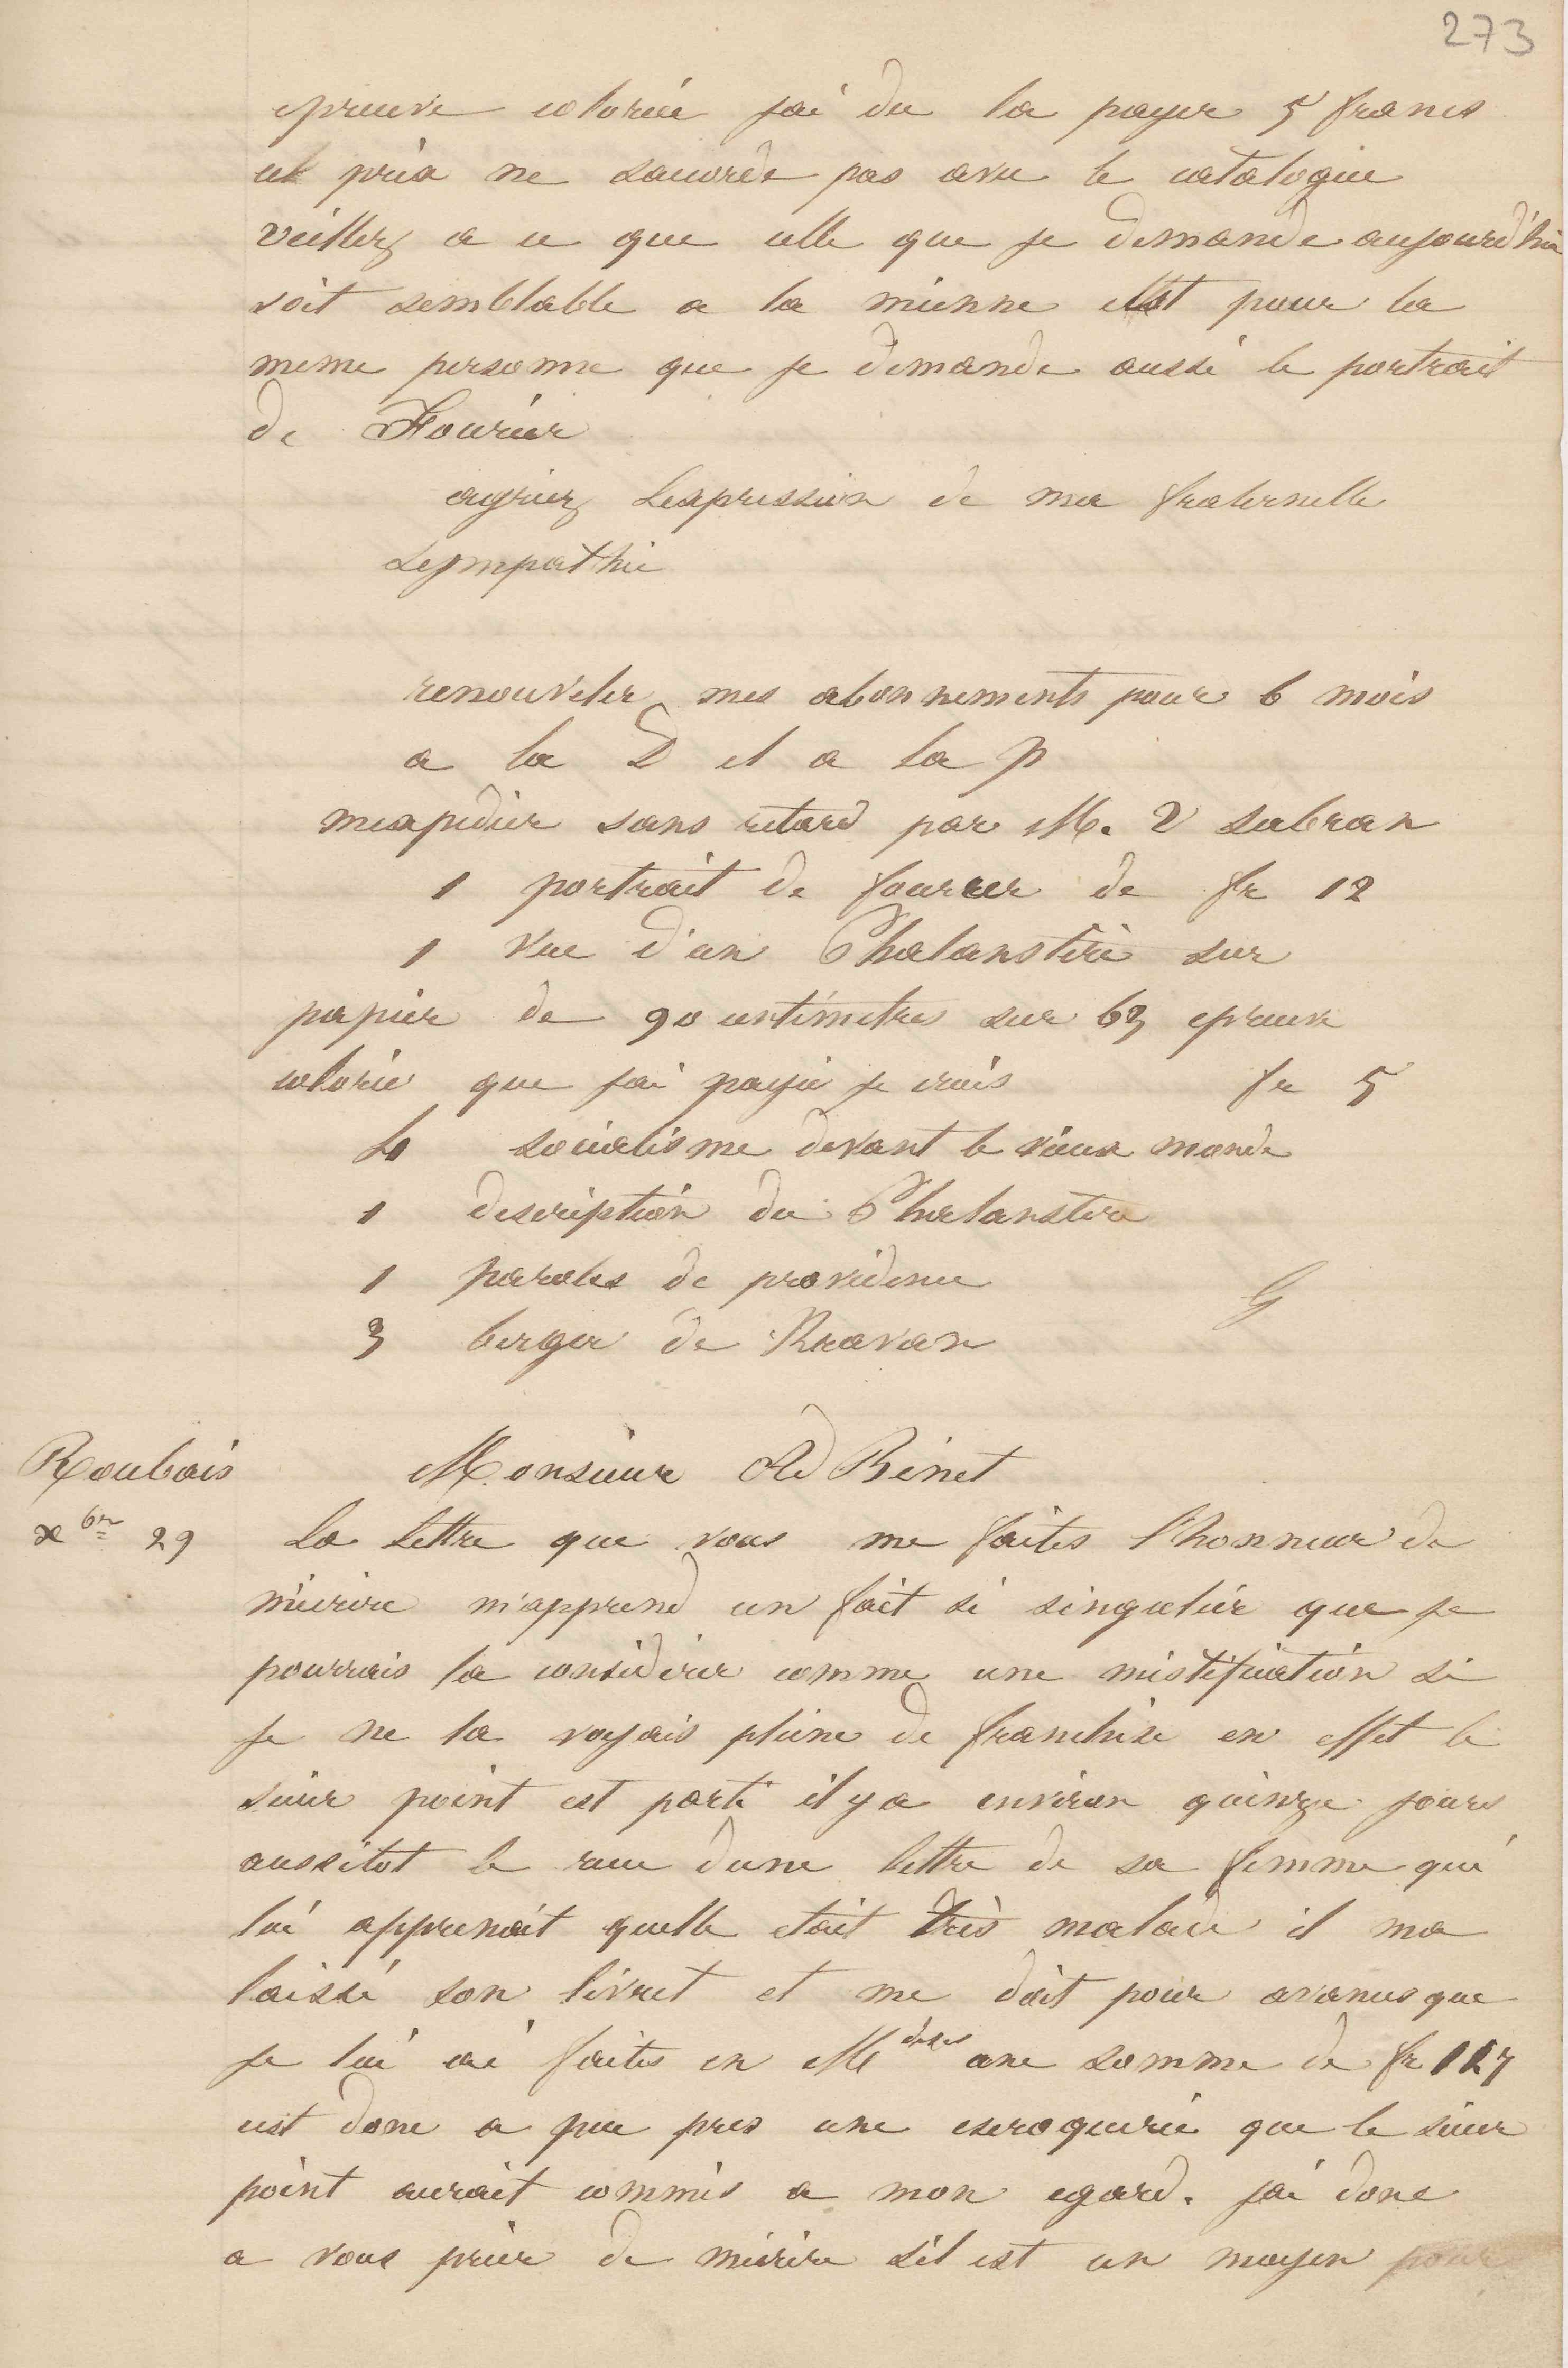 273
epreuve coloriée jai du la payer 5 francs
cet prix ne saccorde pas avec le catalogue
veillez a ce que celle que je demande aujourd'hui
soit semblable a la mienne cest pour la
meme personne que je demande aussi le portrait
de Fourier
agréez lexpression de ma fraternelle
sympathie
renouveler mes abonnements pour 6 mois
a la D et a la P
mexpedier sans retard par M. V Sabran
1 portrait de fourier de fr 12
1 vue d'un Phalanstère sur
papier de 90 centimetres sur 63 epreuve
colorié que jai payé je crois fr 5
socialisme devant le vieux monde
1 description du Phalanstere
1 paroles de providence
3 berger de Kravan
G
Roubais Monsieur Ad Binet
xbre 29 La lettre que vous me faites l'honneur de
m'écrire m'apprend un fait si singulier que je
pourrais la considérer comme une mistification si
je ne la voyais pleine de franchise en effet le
sieur point est parti il y a environ quinze jours
aussitot le recu dune lettre de sa femme qui
lui apprenait quelle etait très malade il ma
laissé son livret et me doit pour avances que
je lui ai faites en Mdises une somme de fr 127
cest donc a peu pres une escroquerie que le sieur
point aurait commis a mon egard. jai donc
a vous prier de mécrire sil est un moyen pour